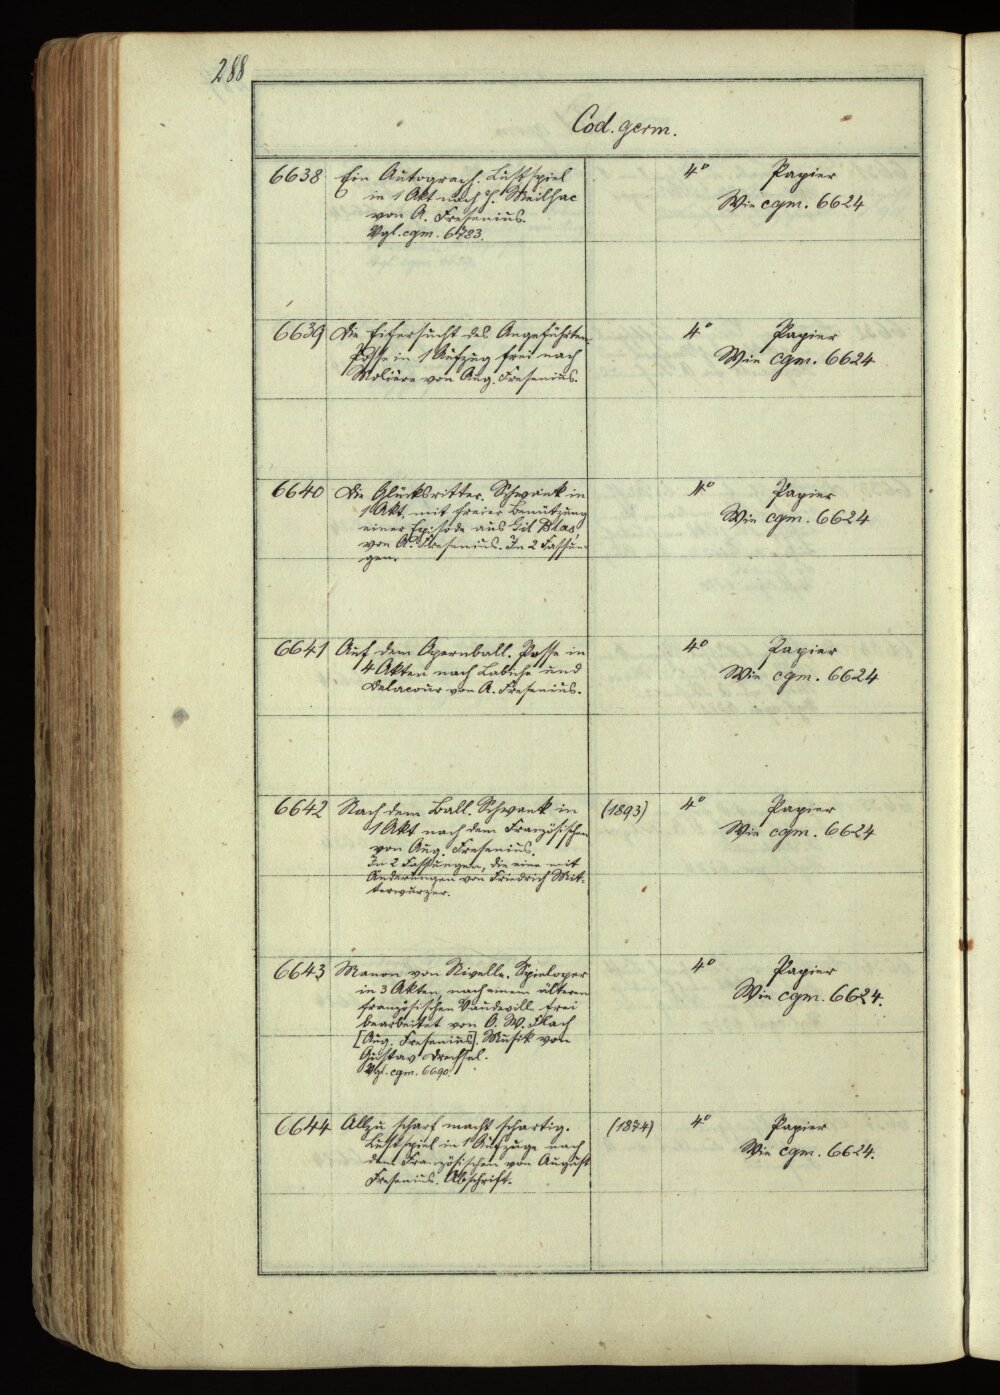 288
Cod. germ.
6638 Ein Autograph. Lustspiel 4° Papier
in 1 Akt nach H. Meilhac Wie cgm. 6624
von A. Fresenius.
Vgl. cgm. 6783.
6639 Die Eifersucht des Angeführten. 4° Papier
Posse in 1 Aufzug frei nach Wie cgm. 6624
Molière von Aug. Fresenius.
6640 Die Glücksritter. Schwank in 4° Papier
1 Akt, mit freier Benützung Wie cgm. 6624
einer Episode aus Gil Blas,
von A. Fresenius. In 2 Fassun-
gen.
6641 Auf dem Opernball. Posse in 4° Papier
4 Akten nach Labiche und Wie cgm. 6624
Delacour von A. Fresenius.
6642 Nach dem Ball. Schwank in (1893) 4° Papier
1 Akt nach dem Französischen Wie cgm. 6624
von Aug. Fresenius.
In 2 Fassungen, die eine mit
Änderungen von Friedrich Mit-
terwurzer.
6643 Manon von Nivelle. Spieloper 4° Papier
in 3 Akten, nach einem älteren Wie cgm. 6624.
französischen Vaudeville frei
bearbeitet von O. W. Flach
[Aug. Fresenius]. Musik von
Gustav Drechsel.
Vgl. cgm. 6690.
6644 Allzu scharf macht schartig. (1874) 4° Papier
Lustspiel in 1 Aufzuge nach Wie cgm. 6624.
dem Französischen von August
Fresenius. Abschrift.